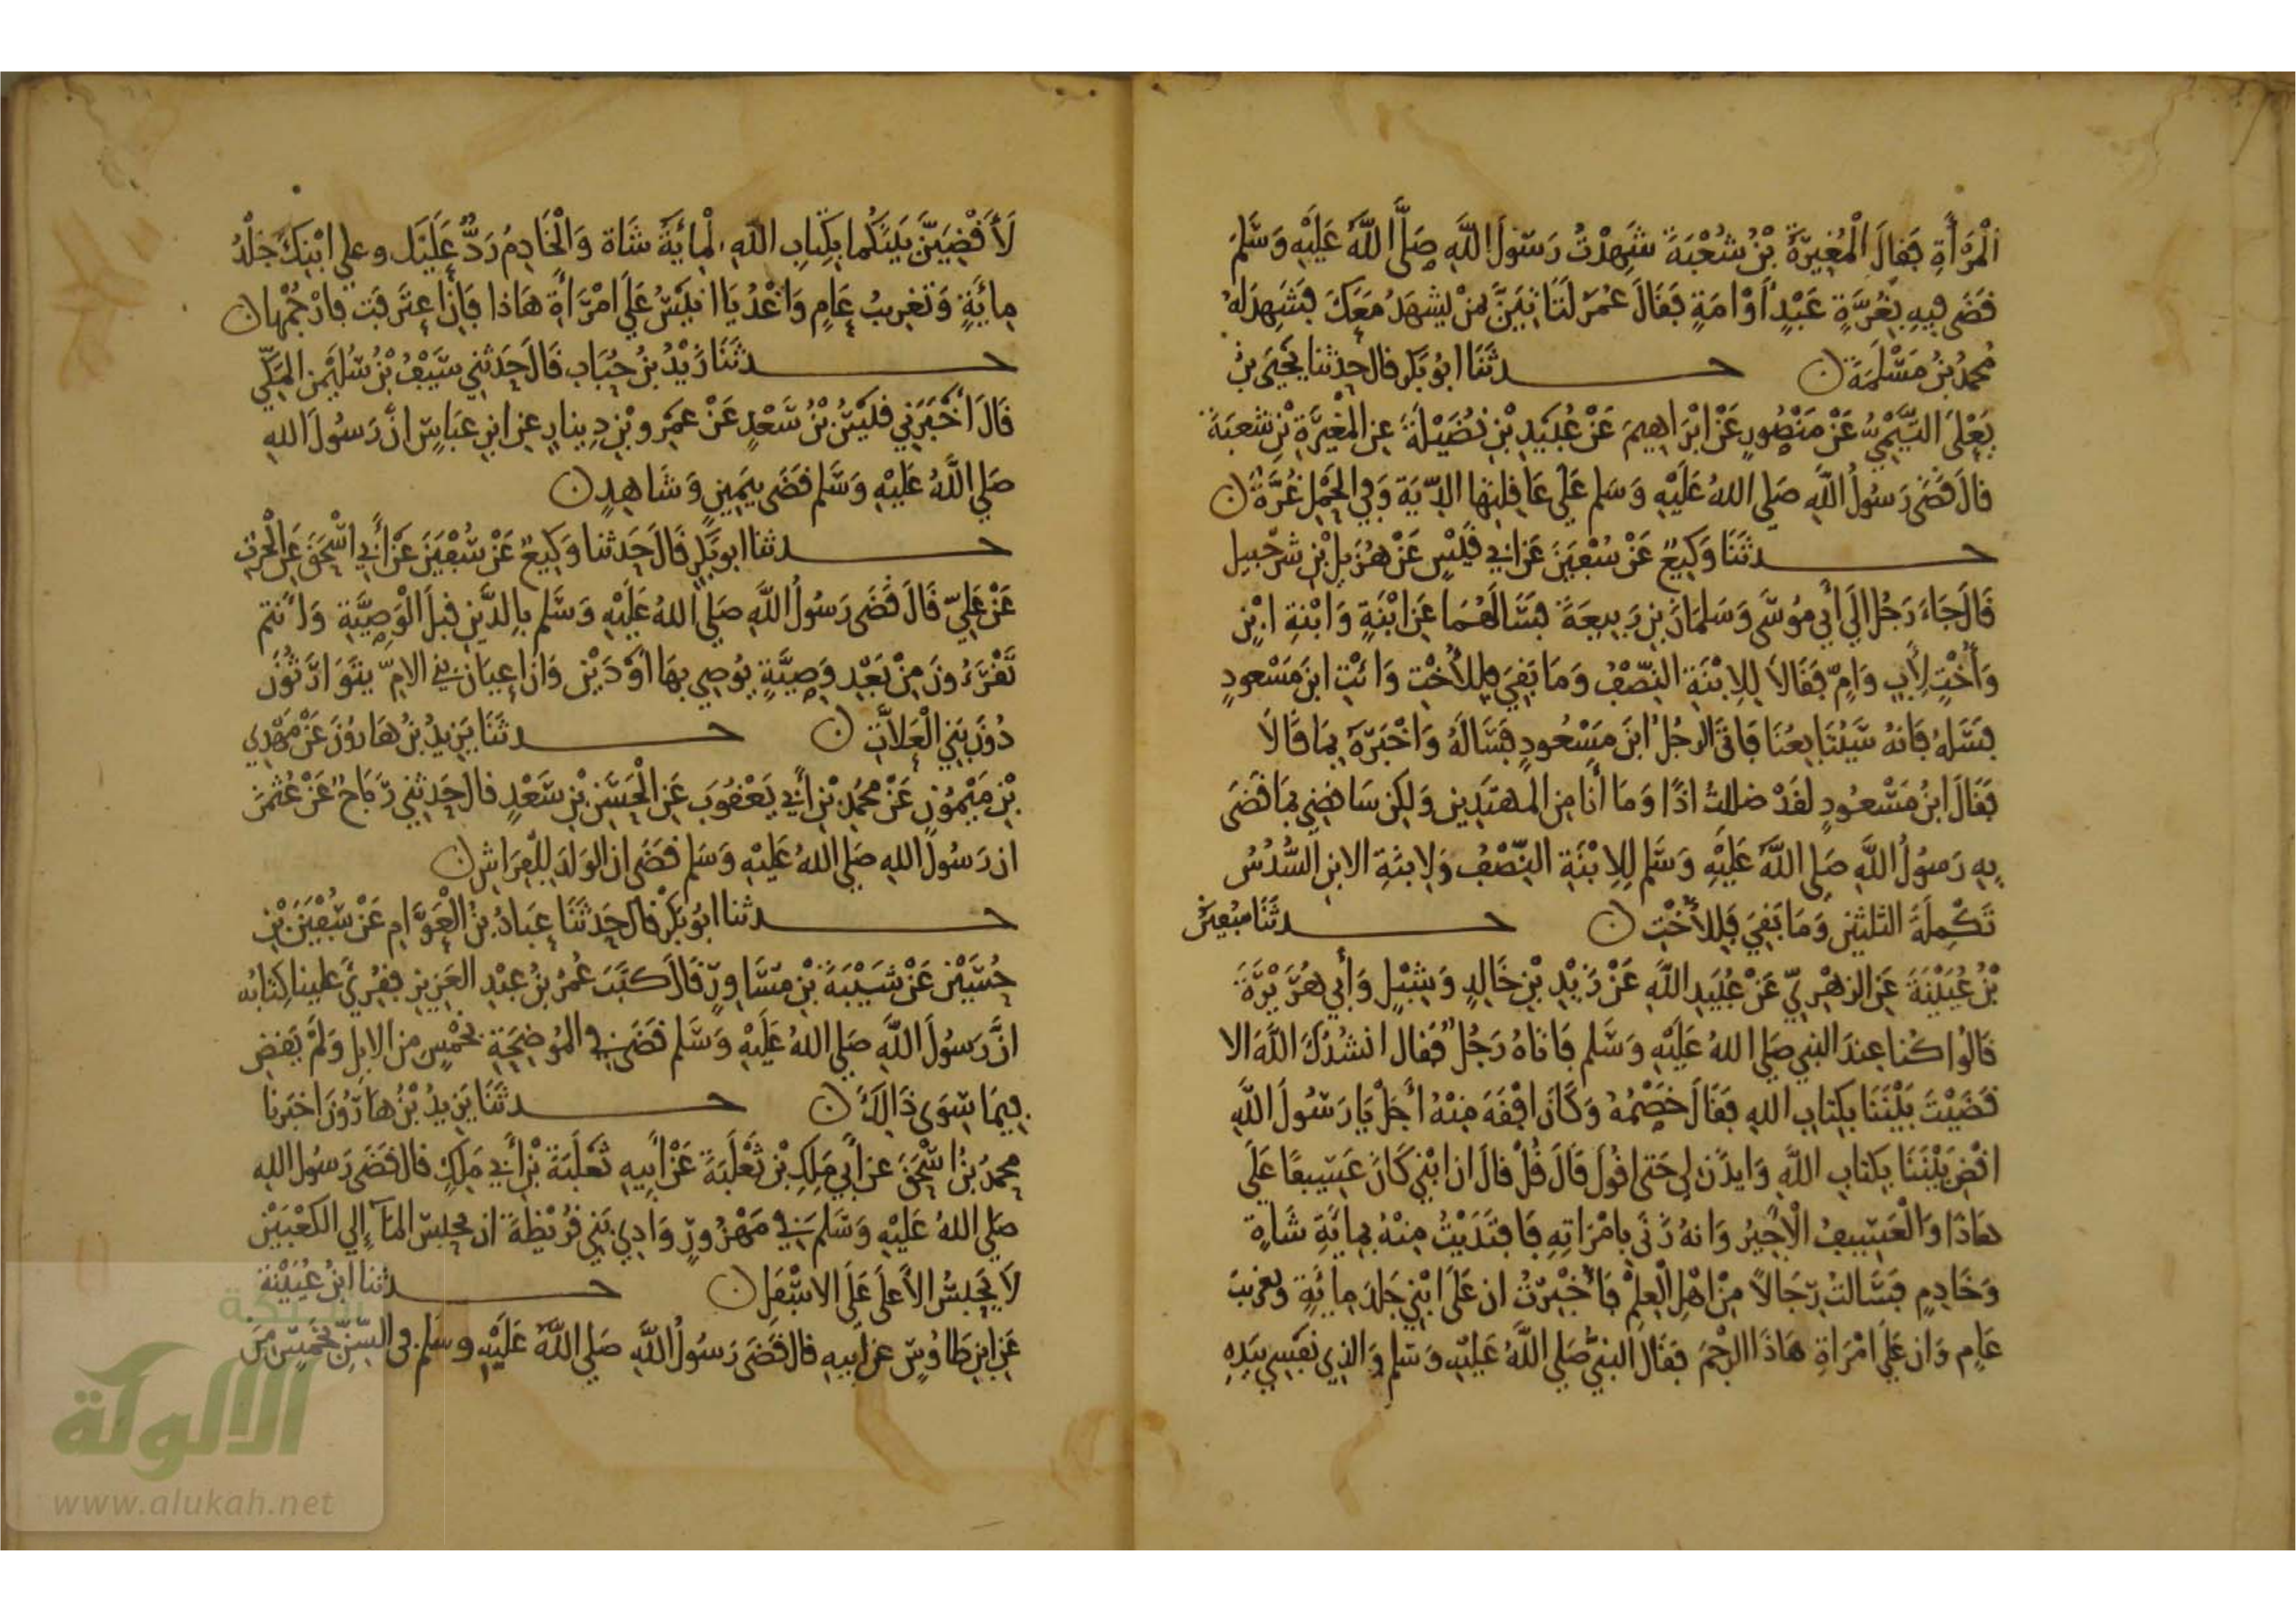 الْمَرْأَةِ فَقَالَ الْمُغِيرَةُ بْنُ شُعْبَةَ شَهِدْتُ رَسُولَ اللَّهِ صَلَّى اللَّهُ عَلَيْهِ وَسَلَّمَ
قَضَى فِيهِ بِغُرَّةٍ عَبْدٍ أَوْ امَةٍ فَقَالَ عُمَرُ لَتَاتِيَنَّ بِمَنْ يَشْهَدُ مَعَكَ فَشَهِدَ لَهُ
مُحَمَّدُ بْنُ مَسْلَمَةَ ن حدثَنَا ابُو بَكْرٍ قال حدثنا يَحْيَى بْنُ
يَعْلَى التَّيْمِيُّ عَنْ مَنْصُورٍ عَنْ ابْرَاهِيمَ عَنْ عُبَيْدِ بْنِ نُضَيْلَةَ عن الْمُغِيَرةِ بْنِ شعبَةَ
قالَ قَضَى رَسُولُ اللَّهِ صَلى اللهُ عَلَيْهِ وَسَلم عَلَى عَاقِلتِهَا الدِّيَة وَفِي الحَمْلِ غُرَّةً ن
حدثَنَا وَكِيعٌ عَنْ سُفْيَنَ عَن ابي قَيْسٍ عَنْ هُزَيلِ بْنِ شُرَحْبِيل
قَالَ جَاءَ رَجُل إلَي أَبي مُوسَى وَسَلمَانَ بن رَبِيعَةَ فَسَالَهُمَا عَن ابْنَةٍ وَابْنَةِ ابْنٍ
وَأُخْتٍ لِأَبٍ وَامٍّ فَقَالَا لِلِابْنَةِ النِّصْفُ وَمَا بَقِيَ فلِلأُخْتِ وَائْتِ ابنَ مَسْعودٍ
فسَلهُ فَانهُ سَيُتَابِعُنَا فَاتَى الرجُلُ ابنَ مَسْعُودٍ فَسَالَهُ وَاخْبَرَهُ بِمَا قَالَا
فَقَالَ ابنُ مَسْعُودٍ لقَدْ ضللتُ اذًا وَمَا أنَا مِن المهتَدِين وَلكن سَاقضِي بمَا قَضَى
بِهِ رَسُولُ اللَّهِ صَلى اللَّهُ عَلَيْهِ وَسَلم لِلِابْنَةِ النِّصْفُ وَلِابنَةِ الابنِ السُّدُسُ
تَكْمِلَةُ الثلثين وَمَا بَقِيَ فَلِلأُخْتِ ن حدثَنَا سُفيَنُ
بْنُ عُيَيْنَةَ عَنِ الزهْرِيِّ عَنْ عُبَيدِ اللَّهِ عَنْ زَيْدِ بْنِ خَالِدٍ وَشِبْلٍ وَأَبي هُرَيْرَةَ
قَالُوا كُنا عِندَ النبي صَلي اللهُ عَلَيْهِ وَسَلم فَاتَاهُ رَجُلٌ فَقال انشُدُكَ اللَّهَ الا
قَضَيْتَ بَيْنَنَا بكِتابِ اللهِ فقَالَ خَصْمُهُ وَكَانَ افْقَهَ مِنْهُ أَجَلْ يَا رَسُولَ اللَّهِ
اقْضِ بَيْنَنَا بِكِتابِ اللَّهِ وَايذَن لي حَتى اقُولَ قَالَ قُلْ قالَ ان ابْني كَانَ عَسِيفًا عَلَى
هَاذَا وَالْعَسِيفُ الْأَجِيرُ وَانهُ زَنَى بِامْرَاتِهِ فَافتَدَيْتُ مِنْهُ بِمِايَةِ شَاةٍ
وَخَادِمٍ فسَالتُ رِجَالًا مِنْ اهْلِ الْعِلْمِ فَأُخْبِرْتُ ان عَلَى ابْنِي جَلدَ مِايَةٍ وَتغرِيبَ
عَامٍ وَان عَلَي امْرَاةِ هَاذَا الرجْمَ فَقَالَ النبيُّ صَلى اللَّهُ عَلَيْهِ وَسَلم وَالذِي نَفْسِي بِيَدِهِ
لَأَقْضِيَنَّ بَيْنَكُما بكِتابِ اللهِ، الْمِايَةُ شَاة وَالْخَادِمُ رَدٌّ عَلَيْكَ وعلى ابْنِكَ جَلْدُ
مِايَةٍ وَتَغرِيبُ عَامٍ وَاغْدُ يَا انيْسُ عَلَى امْرَأَةِ هَاذا فَإِنْ إعتَرَفَت فارْجُمْهَا ن
حدثَنَا زَيْدُ بنُ حُبَابٍ قَالَ حَدثنِي سَيْفُ بْنُ سُلَيْمَن المَكِّي
قَالَ أَخْبَرَنِي قَيْسُ بْنُ سَعْدٍ عَنْ عَمْرِو بْنِ دِينارٍ عن ابنِ عبَاسٍ انَّ رَسُولَ اللهِ
صَلي اللَّهُ عَلَيْهِ وَسَلم قَضَى بِيَمِينٍ وَشَاهِدٍ ن
حدثنا ابو بَكْرٍ قَالَ حَدثنا وَكِيعٌ عَنْ سُفْيَنَ عَنْ أَبي اسْحَقَ عَنِ الْحرثِ
عَنْ عَليّ قَالَ قَضَى رَسُولُ اللَّهِ صَلي اللهُ عَلَيْهِ وَسَلم بِالدَّيْنِ قبلَ الْوَصِيَّةِ وَأَنتم
تَقْرَءُونَ مِنْ بَعْدِ وَصِيَّةٍ يُوصِي بِهَا أَوْ دَيْنٍ وَانَ إعيَانَ بَنِي الامّ يتوَارَثُونَ
دُونَ بَنِي الْعَلَّاتِ ن حدثَنَا يَزِيدُ بنُ هَارُونَ عَنْ مَهْدِي
بْنِ مَيْمُونٍ عَنْ مُحمدِ بْنِ أَبي يَعْقُوبَ عَنِ الْحَسَنِ بْنِ سَعْدٍ قال حَدثنِي رَبَاحٌ عَنْ عُثْمَنَ
ان رَسُولَ اللهِ صَلي اللهُ عَلَيْهِ وَسَلم قَضَى ان الوَلَدَ لِلْفِرَاشِ ن
حدثنا ابُو بَكْرٍ قال حَدثَنَا عبَادُ بنُ الْعَوَّام عَنْ سُفْيَنَ بْنِ
حُسَيْنٍ عَنْ شَيْبَةَ بْنِ مُسَاوِرٍ قَالَ كَتَبَ عُمَرُ بنُ عبْدِ العَزِيزِ فقُرِئ علينا كِتَابُه
انَّ رَسُولَ اللَّهِ صَلي اللهُ عَلَيْهِ وَسَلم قضَى في المُوضِحَةِ بخَمْسٍ من الابِلِ وَلَمْ يَقضِ
فِيمَا سِوَى ذَالِكَ ن حدثَنَا يَزِيدُ بْنُ هَارُونَ اخبَرنا
مُحمدُ بنُ اسْحَقَ عن أَبي مَلِكِ بْنِ ثَعْلَبَةَ عَنْ أَبِيهِ ثَعْلَبَةَ بْنِ أَبي مَلِكٍ قالَ قَضَى رَسُولُ اللهِ
صَلي اللهُ عَلَيْهِ وَسَلم في مَهْزُورٍ وَادِي بَنِي قُرَيْظَةَ ان يحبسَ المآءُ إلي الكَعْبَيْنِ
لَا يَحْبِسُ الأَعلَى عَلَى الاسْفَلِ ن حدثنا ابنُ عُيَيْنَةَ
عَنِ ابنِ طَاوُسٍ عن أَبِيهِ قال قَضَى رَسُولُ اللَّهِ صَلي اللَّهُ عَلَيْهِ وسَلم في السِّنِّ بخَمْسٍ مِنَ
شبكة
الألوكة
www.alukah.net